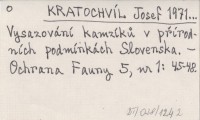 o KRATOCHVÍL Josef 1971...
Vysazování kamzíků v přírod-
ních podmínkách Slovenska. –
Ochrana Fauny 5, nr 1: 45-48.